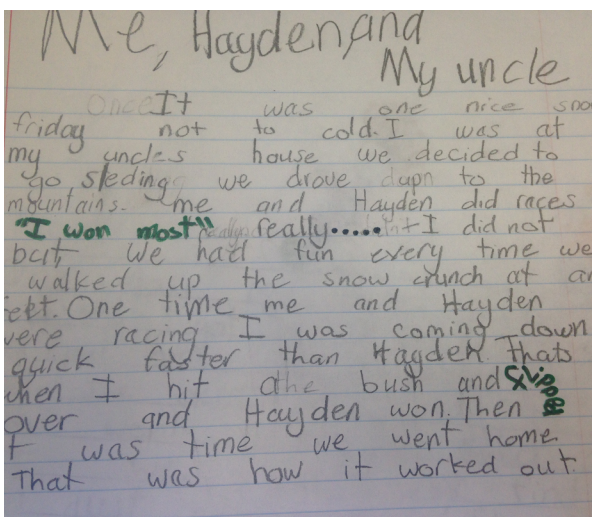 Me, Hayden, and
My uncle
Once It was one nice sno
friday not to cold. I was at
my uncles house we decided to
go sleding we drove dupn to the
mountains. me and Hayden did races
"I won most" really really..... I did not
but We had fun every time we
walked up the snow crunch at
feet. One time me and Hayden
were racing I was coming down
quick faster than Hayden Thats
when I hit the bush and
over and Hayden won. Then
it was time we went home
That was how it worked out.